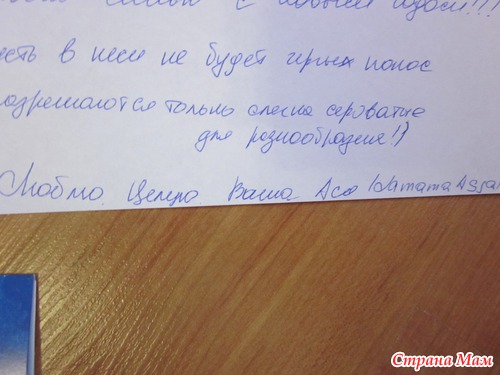 с Новым годом!!!
есть в нем не будет черных полос
разрешаются только слегка сероватые
для разнообразия!!)
Люблю. Целую. Ваша Ася
Страна Мам